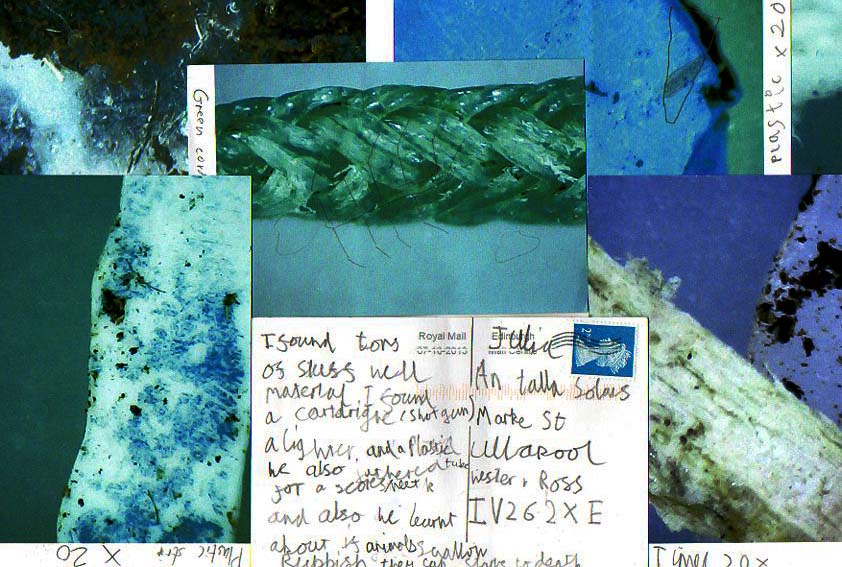 plastic x 20
Green cor
I found tons
of stuff well
material I found
a cartdrighe (shotgun)
a lighter, and a Plastic
tube
he also
for a
and also he learnt
about if animals swallow
Rubbish they can starve to death
Royal Mail
07-10-2013
Edinburgh
Mail Centre
Julie
An talla Solais
Marke St
Ullapool
Wester, Ross
IV26 2XE
Plastic X 20
Timer 20x